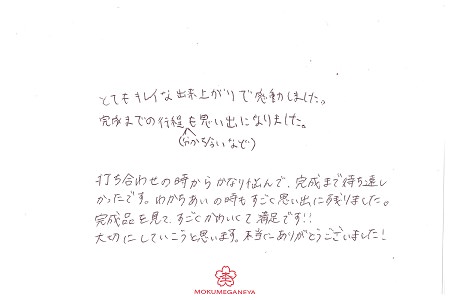 とてもキレイな出来上がりで感動しました。
完成までの行程も思い出になりました。
(分かち合いなど)
打ち合わせの時からかなり悩んで、完成まで待ち遠し
かったです。わかちあいの時もすごく思い出に残りました。
完成品を見て、すごくかわいくて満足です!!
大切にしていこうと思います。本当にありがとうございました!
MOKUMEGANEYA